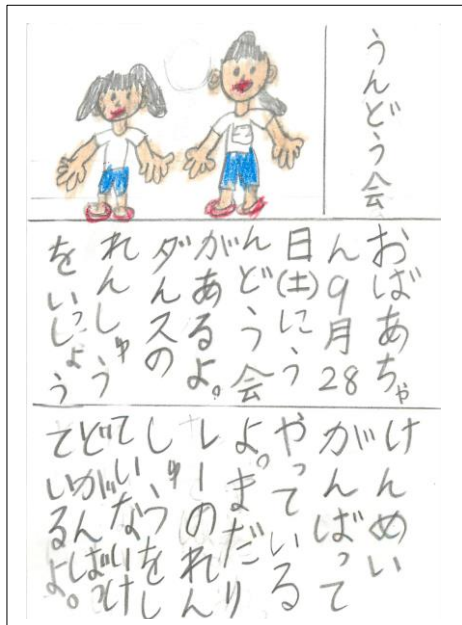 うんどう会
おばあちゃ
ん9月28
日(土)にう
んどう会
があるよ。
ダんスの
れんしゅう
をいっしょう
けんめい
がんばって
やっている
よ。まだリ
レーのれん
しゅうをし
ていないけ
どがんばっ
ているよ。